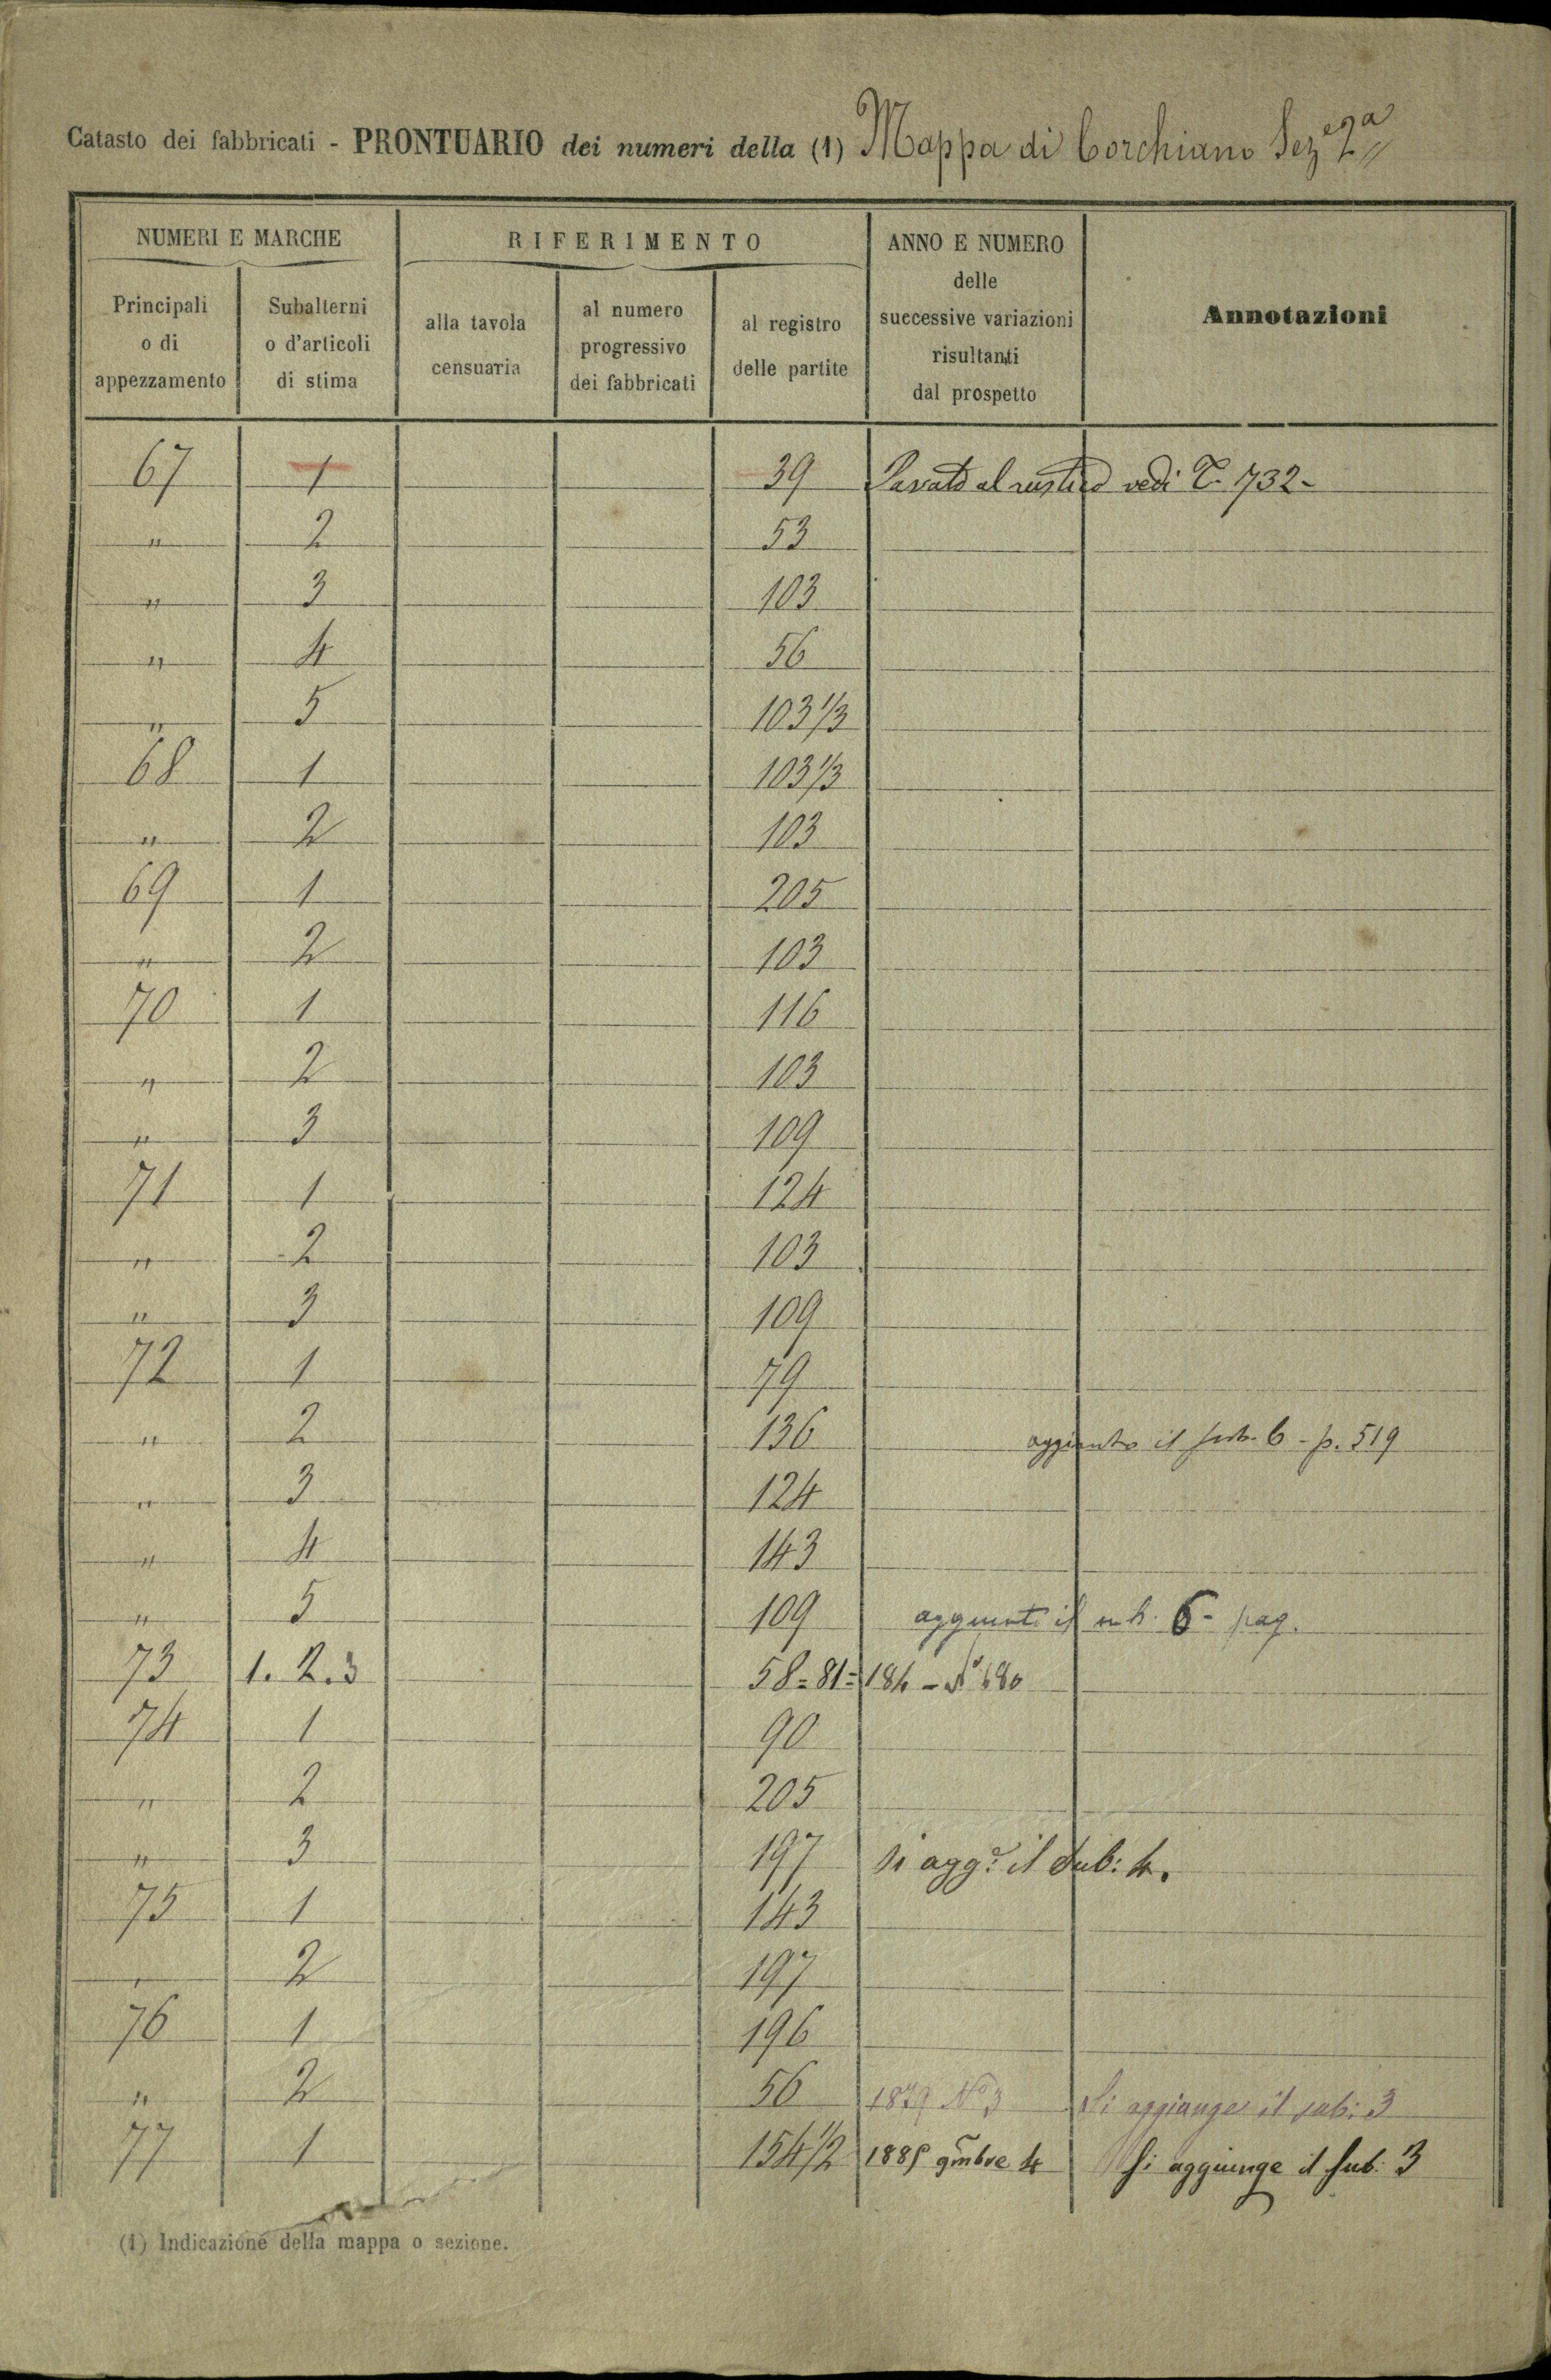 Catasto dei fabbricati - PRONTUARIO dei numeri della (1) Mappa di Corchiano Sez.e 2a
NUMERI E MARCHE
RIFERIMENTO
ANNO E NUMERO
delle
successive variazioni
risultanti
dal prospetto
Annotazioni
Principali
o di
appezzamento
Subalterni
o d'articoli
di stima
alla tavola
censuaria
al numero
progressivo
dei fabbricati
al registro
delle partite
67 1 39 al rustico vedi 732-
" 2 53
" 3 103
" 4 56
" 5 103 1/3
68 1 103 1/3
" 2 103
69 1 205
" 2 103
70 1 116
" 2 103
" 3 109
71 1 124
" 2 103
" 3 109
72 1 79
" 2 136 aggiunto il sub. 6 - p. 519
" 3 124
" 4 143
" 5 109 aggiunto il sub. 6 - pag.
73 1. 2. 3 58 = 81 = 184 - 680
74 1 90
" 2 205
" 3 197 Si agg.e il Sub: 4.
75 1 143
" 2 197
76 1 196
" 2 56 1879 No 3 Si aggiunge il sub: 3
77 1 154 1/2 1885 9mbre 4 Si aggiunge il Sub: 3
(1) Indicazione della mappa o sezione.